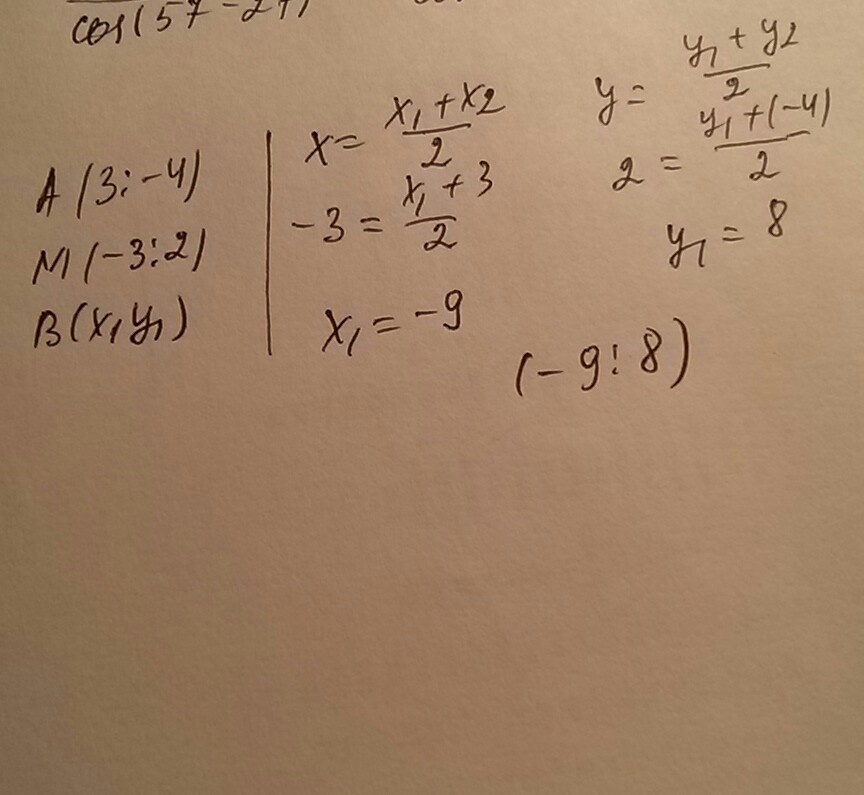 cos(57-27)
A(3:-4)
M(-3:2)
B(x₁y₁)
x = (x₁+x₂)/2
-3 = (x₁+3)/2
x₁ = -9
y = (y₁+y₂)/2
2 = (y₁+(-4))/2
y₁ = 8
(-9:8)